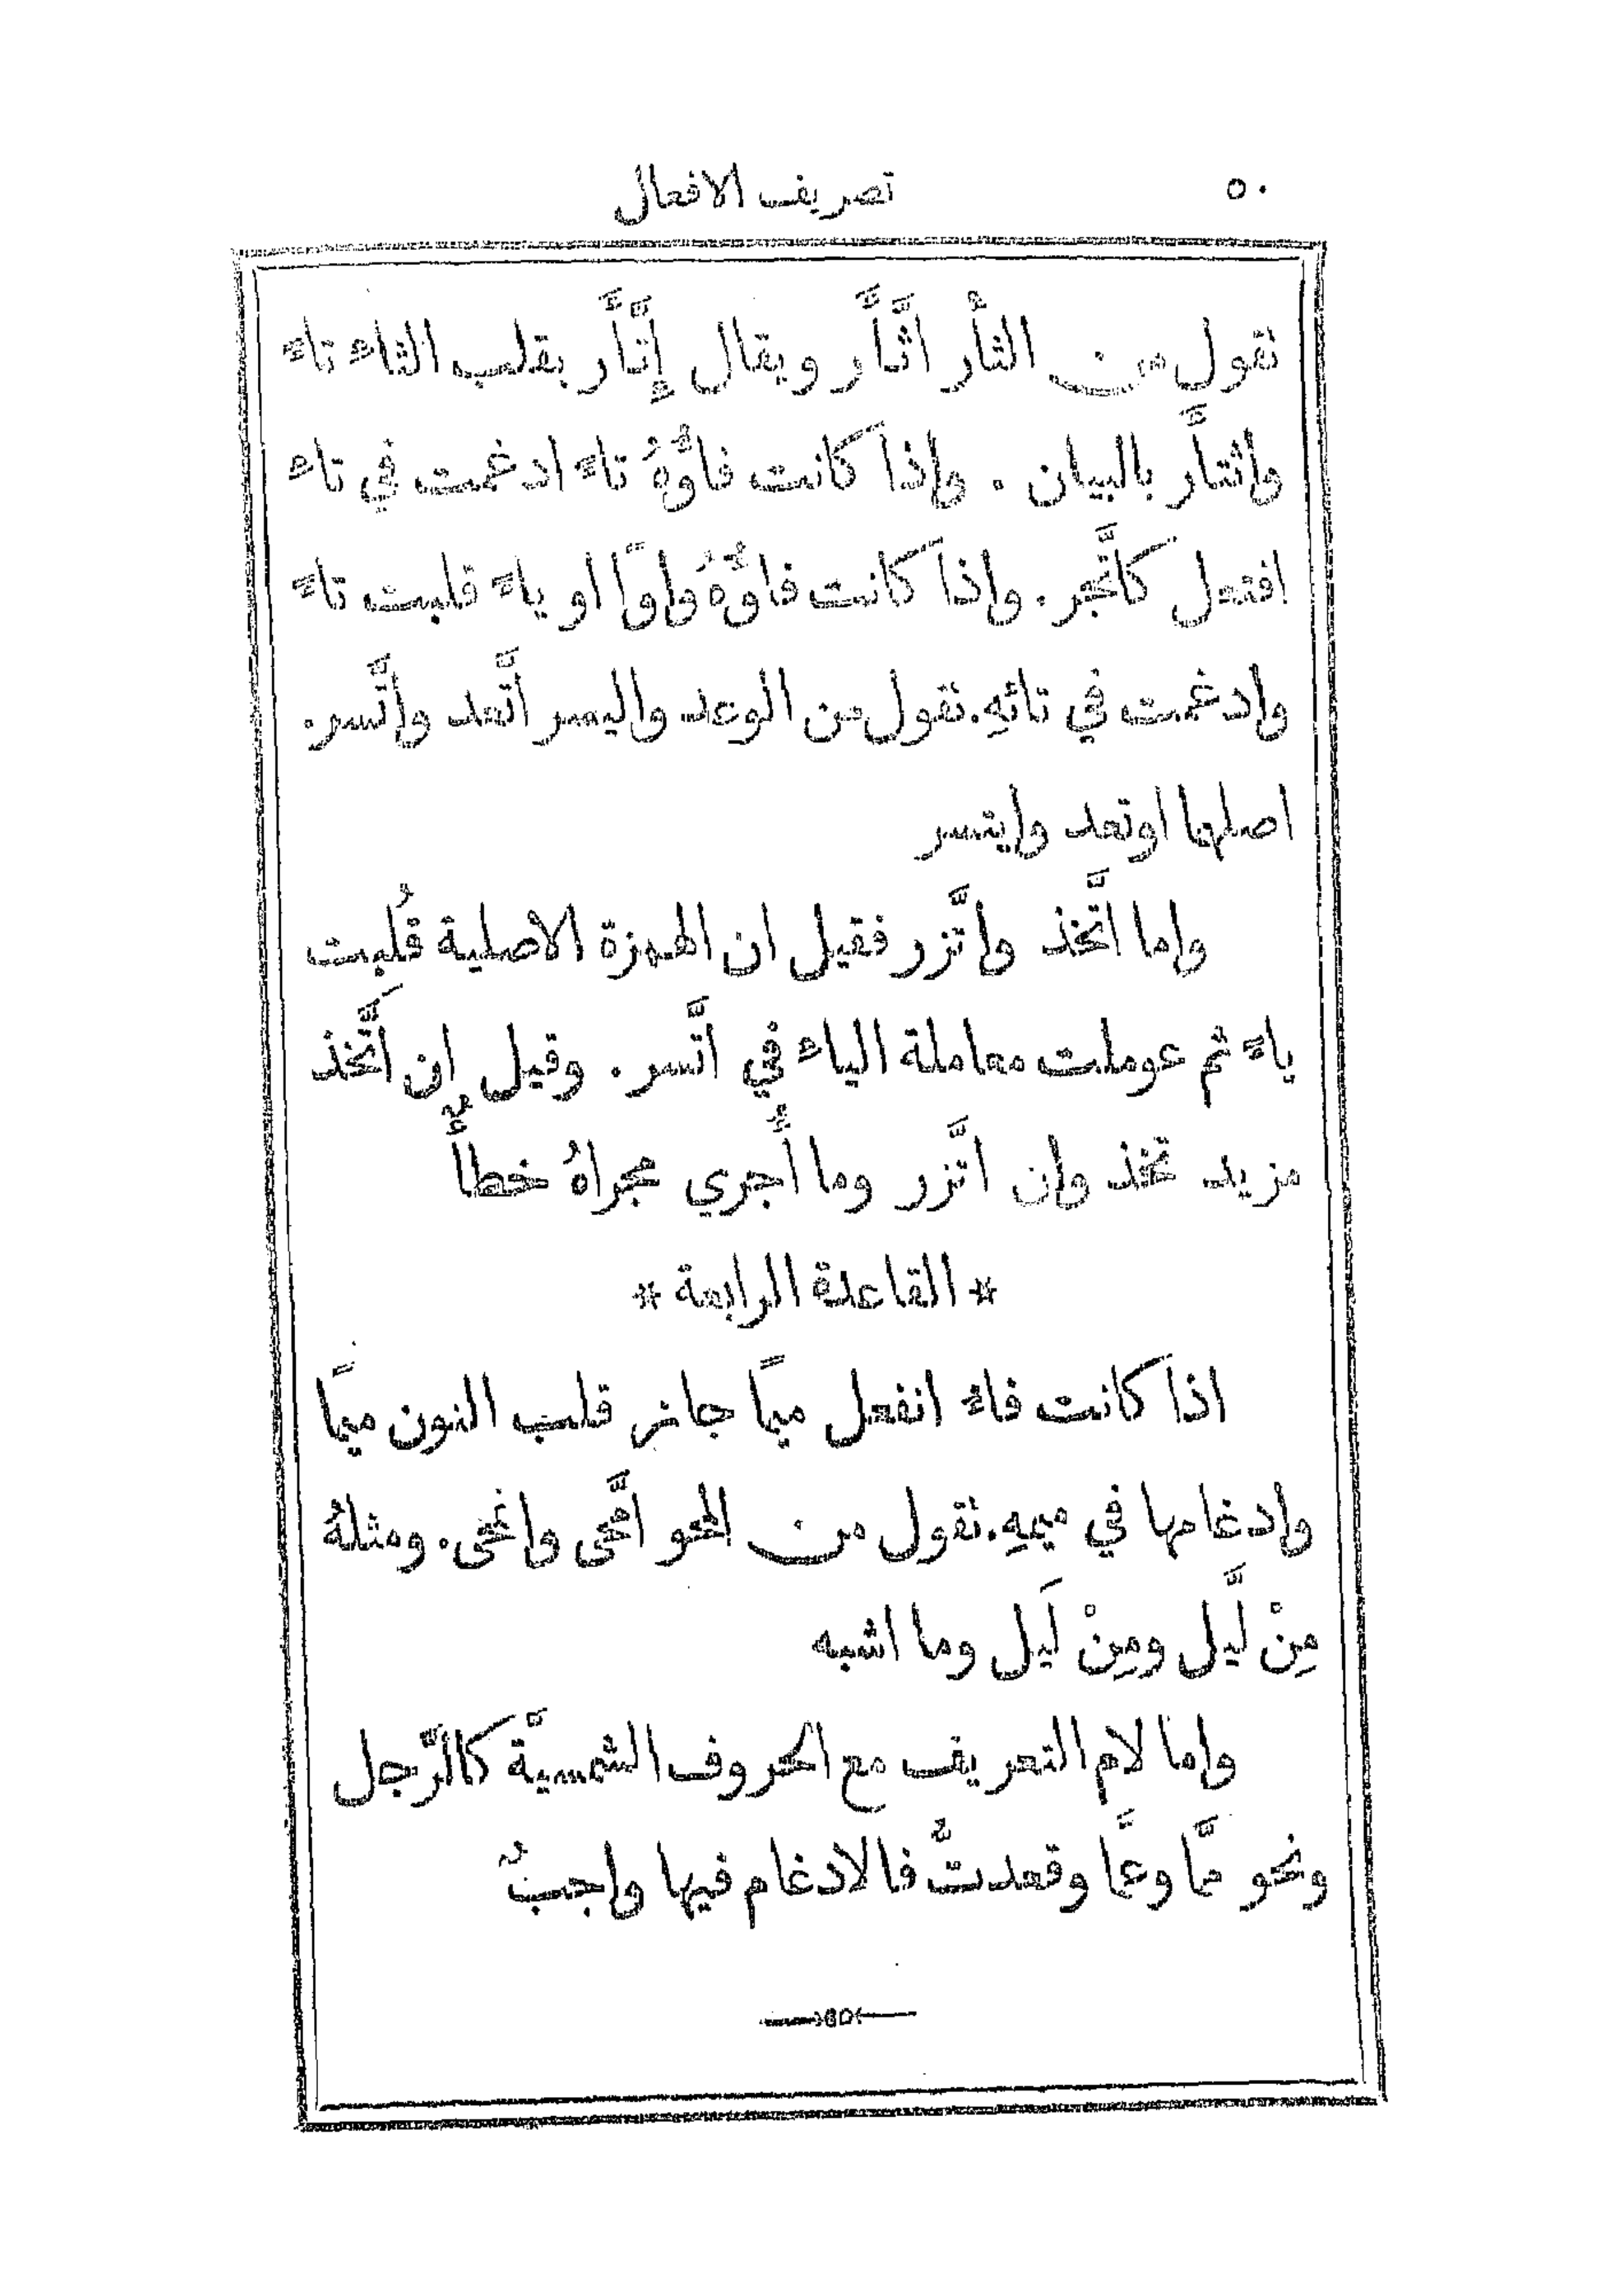 ٥٠ تصريف الافعال
تقول من الثأر اثَّأَر ويقال إِتَّأَر بقلب الثاءِ تاءً
واثتأَر بالبيان . واذا كانت فاؤُهُ تاءً ادغمت في تاءِ
افتعل كاتَّجر . واذا كانت فاؤُهُ واوًا او ياءً قلبت تاءً
وادغمت في تائهِ . تقول من الوعد واليسر اتَّعد واتَّسر .
اصلهما اوتعد وايتسر
واما اتَّخذ واتَّزر فقيل ان الهمزة الاصلية قُلبت
ياءً ثم عوملت معاملة الياءِ في اتَّسر . وقيل ان اتَّخذ
مزيد تخذ وان اتَّزر وما أُجري مجراهُ خطأٌ
* القاعدة الرابعة *
اذا كانت فاءُ انفعل ميمًا جاز قلب النون ميمًا
وادغامها في ميمهِ . تقول من المحو امَّحى وانمحى . ومثلهُ
مِنْ لَّيل ومِنْ لَيل وما اشبه
واما لام التعريف مع الحروف الشمسيَّة كالرَّجل
ونحو ممَّا وعمَّا وقعدتُّ فالادغام فيها واجبٌ